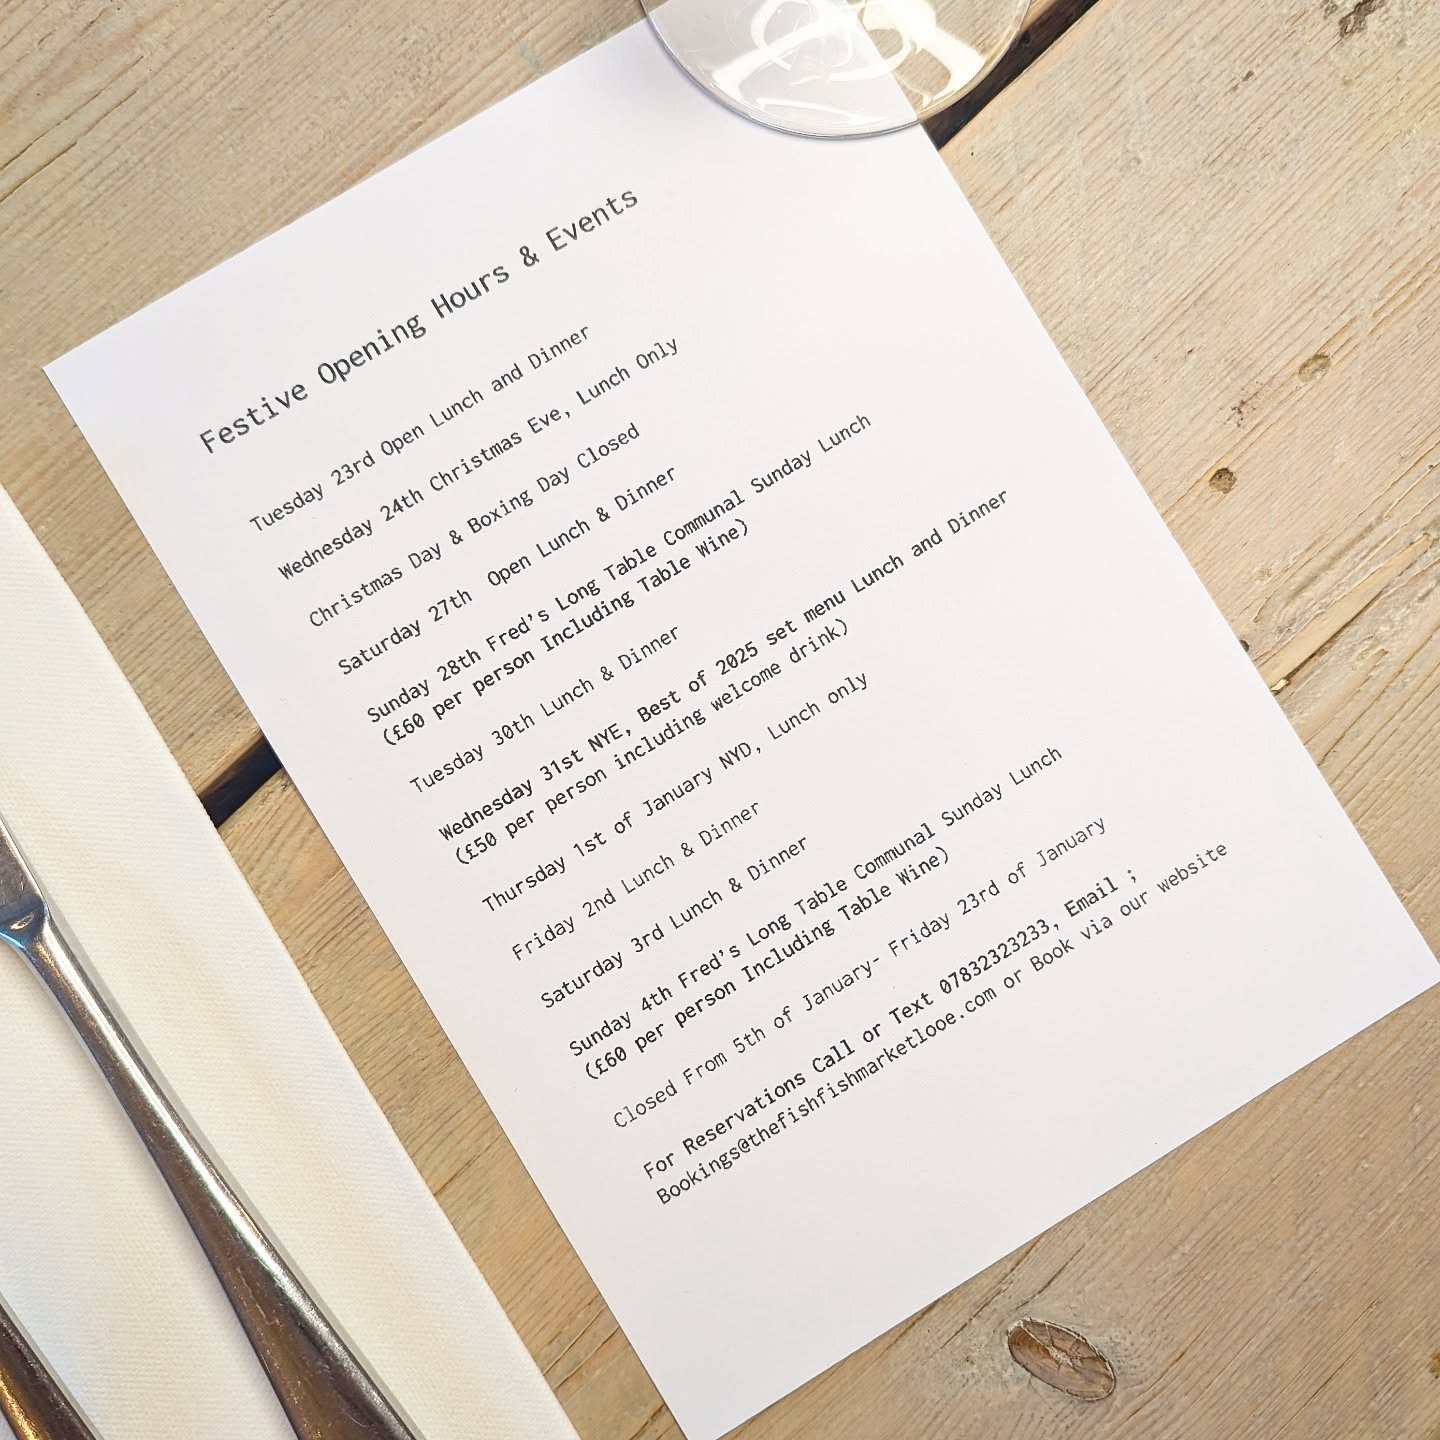 Festive Opening Hours & Events
Tuesday 23rd Open Lunch and Dinner
Wednesday 24th Christmas Eve, Lunch Only
Christmas Day & Boxing Day Closed
Saturday 27th Open Lunch & Dinner
Sunday 28th Fred's Long Table Communal Sunday Lunch
(£60 per person Including Table Wine)
Tuesday 30th Lunch & Dinner
Wednesday 31st NYE, Best of 2025 set menu Lunch and Dinner
(£50 per person including welcome drink)
Thursday 1st of January NYD, Lunch only
Friday 2nd Lunch & Dinner
Saturday 3rd Lunch & Dinner
Sunday 4th Fred's Long Table Communal Sunday Lunch
(£60 per person Including Table Wine)
Closed From 5th of January- Friday 23rd of January
For Reservations Call or Text 07832323233, Email ;
Bookings@thefishfishmarketlooe.com or Book via our website